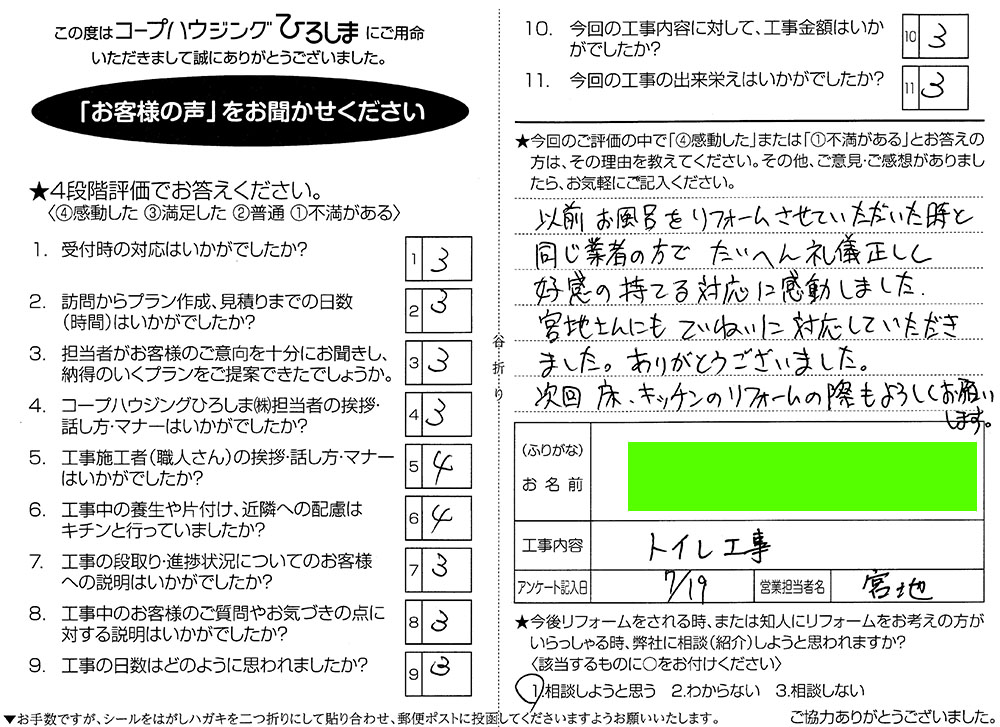 この度はコープハウジングひろしまにご用命
いただきまして誠にありがとうございました。
「お客様の声」をお聞かせください
★4段階評価でお答えください。
〈④感動した ③満足した ②普通 ①不満がある〉
1. 受付時の対応はいかがでしたか?
1 3
2. 訪問からプラン作成、見積りまでの日数
(時間)はいかがでしたか?
2 3
3. 担当者がお客様のご意向を十分にお聞きし、
納得のいくプランをご提案できたでしょうか。
3 3
4. コープハウジングひろしま㈱担当者の挨拶・
話し方・マナーはいかがでしたか?
4 3
5. 工事施工者(職人さん)の挨拶・話し方・マナー
はいかがでしたか?
5 4
6. 工事中の養生や片付け、近隣への配慮は
キチンと行っていましたか?
6 4
7. 工事の段取り・進捗状況についてのお客様
への説明はいかがでしたか?
7 3
8. 工事中のお客様のご質問やお気づきの点に
対する説明はいかがでしたか?
8 3
9. 工事の日数はどのように思われましたか?
9 3
谷折り
10. 今回の工事内容に対して、工事金額はいか
がでしたか?
10 3
11. 今回の工事の出来栄えはいかがでしたか?
11 3
★今回のご評価の中で「④感動した」または「①不満がある」とお答えの
方は、その理由を教えてください。その他、ご意見・ご感想がありまし
たら、お気軽にご記入ください。
以前お風呂をリフォームさせていただいた時と
同じ業者の方で たいへん礼儀正しく
好感の持てる対応に感動しました.
宮地さんにも ていねいに対応していただき
ました。ありがとうございました。
次回 床、キッチンのリフォームの際もよろしくお願い
します。
(ふりがな)
お名前
工事内容 トイレ工事
アンケート記入日 7/19 営業担当者名 宮地
★今後リフォームをされる時、または知人にリフォームをお考えの方が
いらっしゃる時、弊社に相談(紹介)しようと思われますか?
〈該当するものに○をお付けください〉
1.相談しようと思う 2.わからない 3.相談しない
▼お手数ですが、シールをはがしハガキを二つ折りにして貼り合わせ、郵便ポストに投函してくださいますようお願いいたします。 ご協力ありがとうございました。